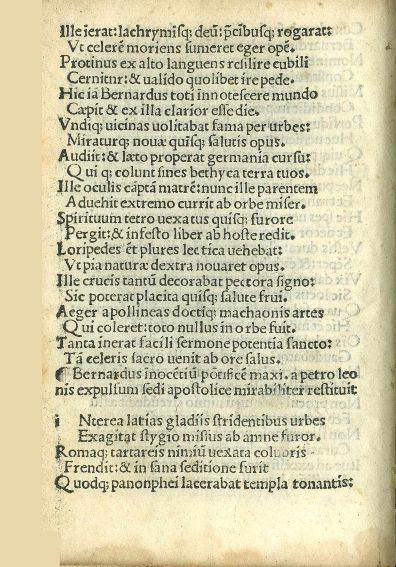 Ille ierat: lachrymisq; deū: p̄cibusq; rogarat:
Vt celerē moriens sumeret eger opē.
Protinus ex alto languens resilire cubili
Cernitur: & ualido quolibet ire pede.
Hic iā Bernardus toti innotescere mundo
Cæpit & ex illa clarior esse die.
Vndiq; uicinas uolitabat fama per urbes:
Miratur q; nouæ quisq; salutis opus.
Audiit: & læto properat germania cursu:
Qui q; colunt sines bethyca terra tuos.
Ille oculis captā matrē: nunc ille parentem
Aduehit extremo currit ab orbe miser.
Spirituum tetro uexatus quisq; furore
Pergit: & infesto liber ab hoste redit.
Loripedes et plures lectica uehebat:
Vt pia naturæ dextra nouaret opus.
Ille crucis tantū decorabat pectora signo:
Sic poterat placita quisq; salute frui.
Aeger apollineas doctiq; machaonis artes
Qui coleret: toto nullus in orbe fuit.
Tanta inerat facili sermone potentia sancto:
Tā celeris sacro uenit ab ore salus.
¶ Bernardus inocētiū pōtificē maxi. a petro leo
nis expulsum sedi apostolice mirabiliter restituit
i Nterea latias gladiis stridentibus urbes
Exagitat stygio missus ab amne furor.
Romaq; tartareis nimiū uexata colubris
Frendit: & in sana seditione furit
Quodq; panonphei lacerabat templa tonantis: